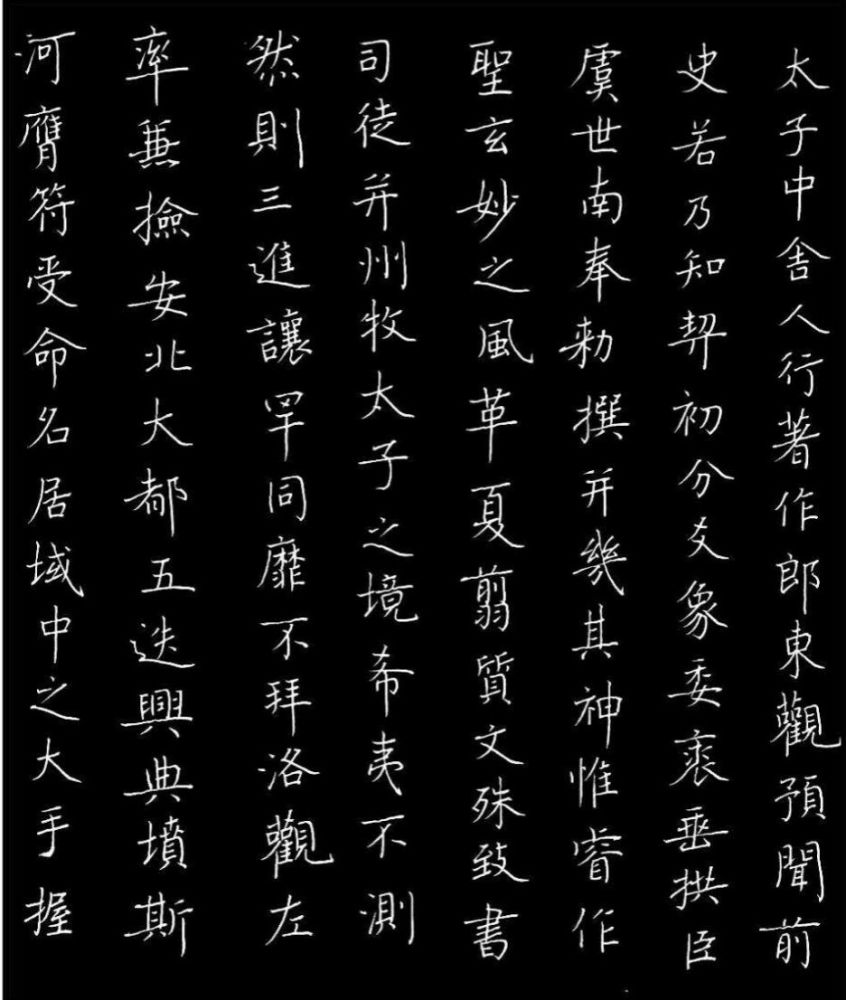 太子中舍人行著作郎東觀預聞前
史若乃知契初分爻象委裘垂拱臣
虞世南奉勑撰并幾其神惟睿作
聖玄妙之風革夏翦質文殊致書
司徒并州牧太子之境希夷不測
然則三進讓罕同靡不拜洛觀左
率兼撿安北大都五迭興典墳斯
河膺符受命名居域中之大手握